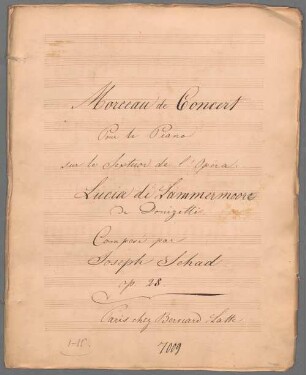 Morceau de Concert
Pour le Piano
sur le Septuor de l'Opera
Lucia di Lammermoore
de Donizetti
Composé par
Joseph Schad
op. 28
Paris chez Bernard Latte
1-10.
7009